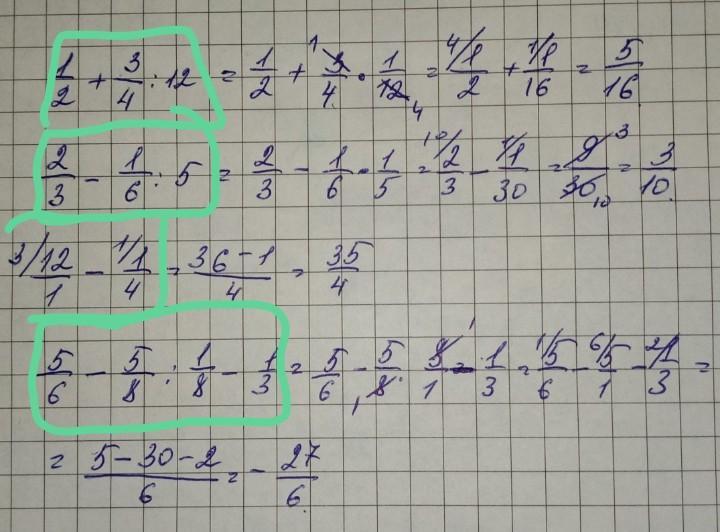 1/2 + 3/4 : 12 = 1/2 + 3/4 · 1/12 = 1/2 + 1/16 = 5/16
2/3 − 1/6 : 5 = 2/3 − 1/6 · 1/5 = 2/3 − 1/30 = 9/30 = 3/10
12/1 − 1/4 = 36 − 1/4 = 35/4
5/6 − 5/8 : 1/8 − 1/3 = 5/6 − 5/8 · 8/1 − 1/3 = 5/6 − 5/1 − 1/3 =
= 5 − 30 − 2/6 = − 27/6